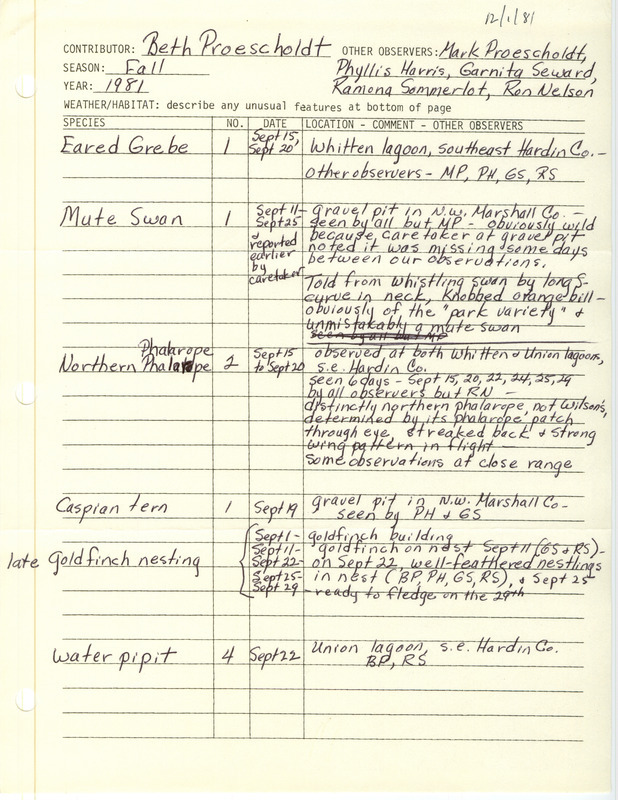 12/1/81
CONTRIBUTOR: Beth Proescholdt OTHER OBSERVERS: Mark Proescholdt,
SEASON: Fall Phyllis Harris, Garnita Seward,
YEAR: 1981 Ramona Sommerlot, Ron Nelson
WEATHER/HABITAT: describe any unusual features at bottom of page
SPECIES NO. DATE LOCATION - COMMENT - OTHER OBSERVERS
Eared Grebe 1 Sept 15, Sept 20 Whitten lagoon, southeast Hardin Co. -
Other observers - MP, PH, GS, RS
Mute Swan 1 Sept 11- gravel pit in N.W. Marshall Co. -
Sept 25 seen by all but MP - obviously wild
& because caretaker at gravel pit
reported noted it was missing some days
earlier between our observations.
by
caretaker Told from whistling swan by long S-
curve in neck, knobbed orange bill -
obviously of the "park variety" &
unmistakably a mute swan
seen by all but MP
Phalarope
Northern Phalarope 2 Sept 15 observed at both Whitten & Union lagoons,
to Sept 20 s.e. Hardin Co.
seen 6 days - Sept 15, 20, 22, 24, 25, 29
by all observers but RN -
distinctly northern phalarope, not Wilson's,
determined by its phalarope patch
through eye, streaked back & strong
wing pattern in flight
Some observations at close range
Caspian tern 1 Sept 19 gravel pit in N.W. Marshall Co -
seen by PH & GS
Sept 1- goldfinch building
Sept 11- goldfinch on nest Sept 11 (GS & RS) -
late Goldfinch nesting Sept 22- on Sept 22, well-feathered nestlings
Sept 25- in nest (BP, PH, GS, RS), & Sept 25
Sept 29 - ready to fledge on the 29th
Water pipit 4 Sept 22 Union lagoon, s.e. Hardin Co.
BP, RS